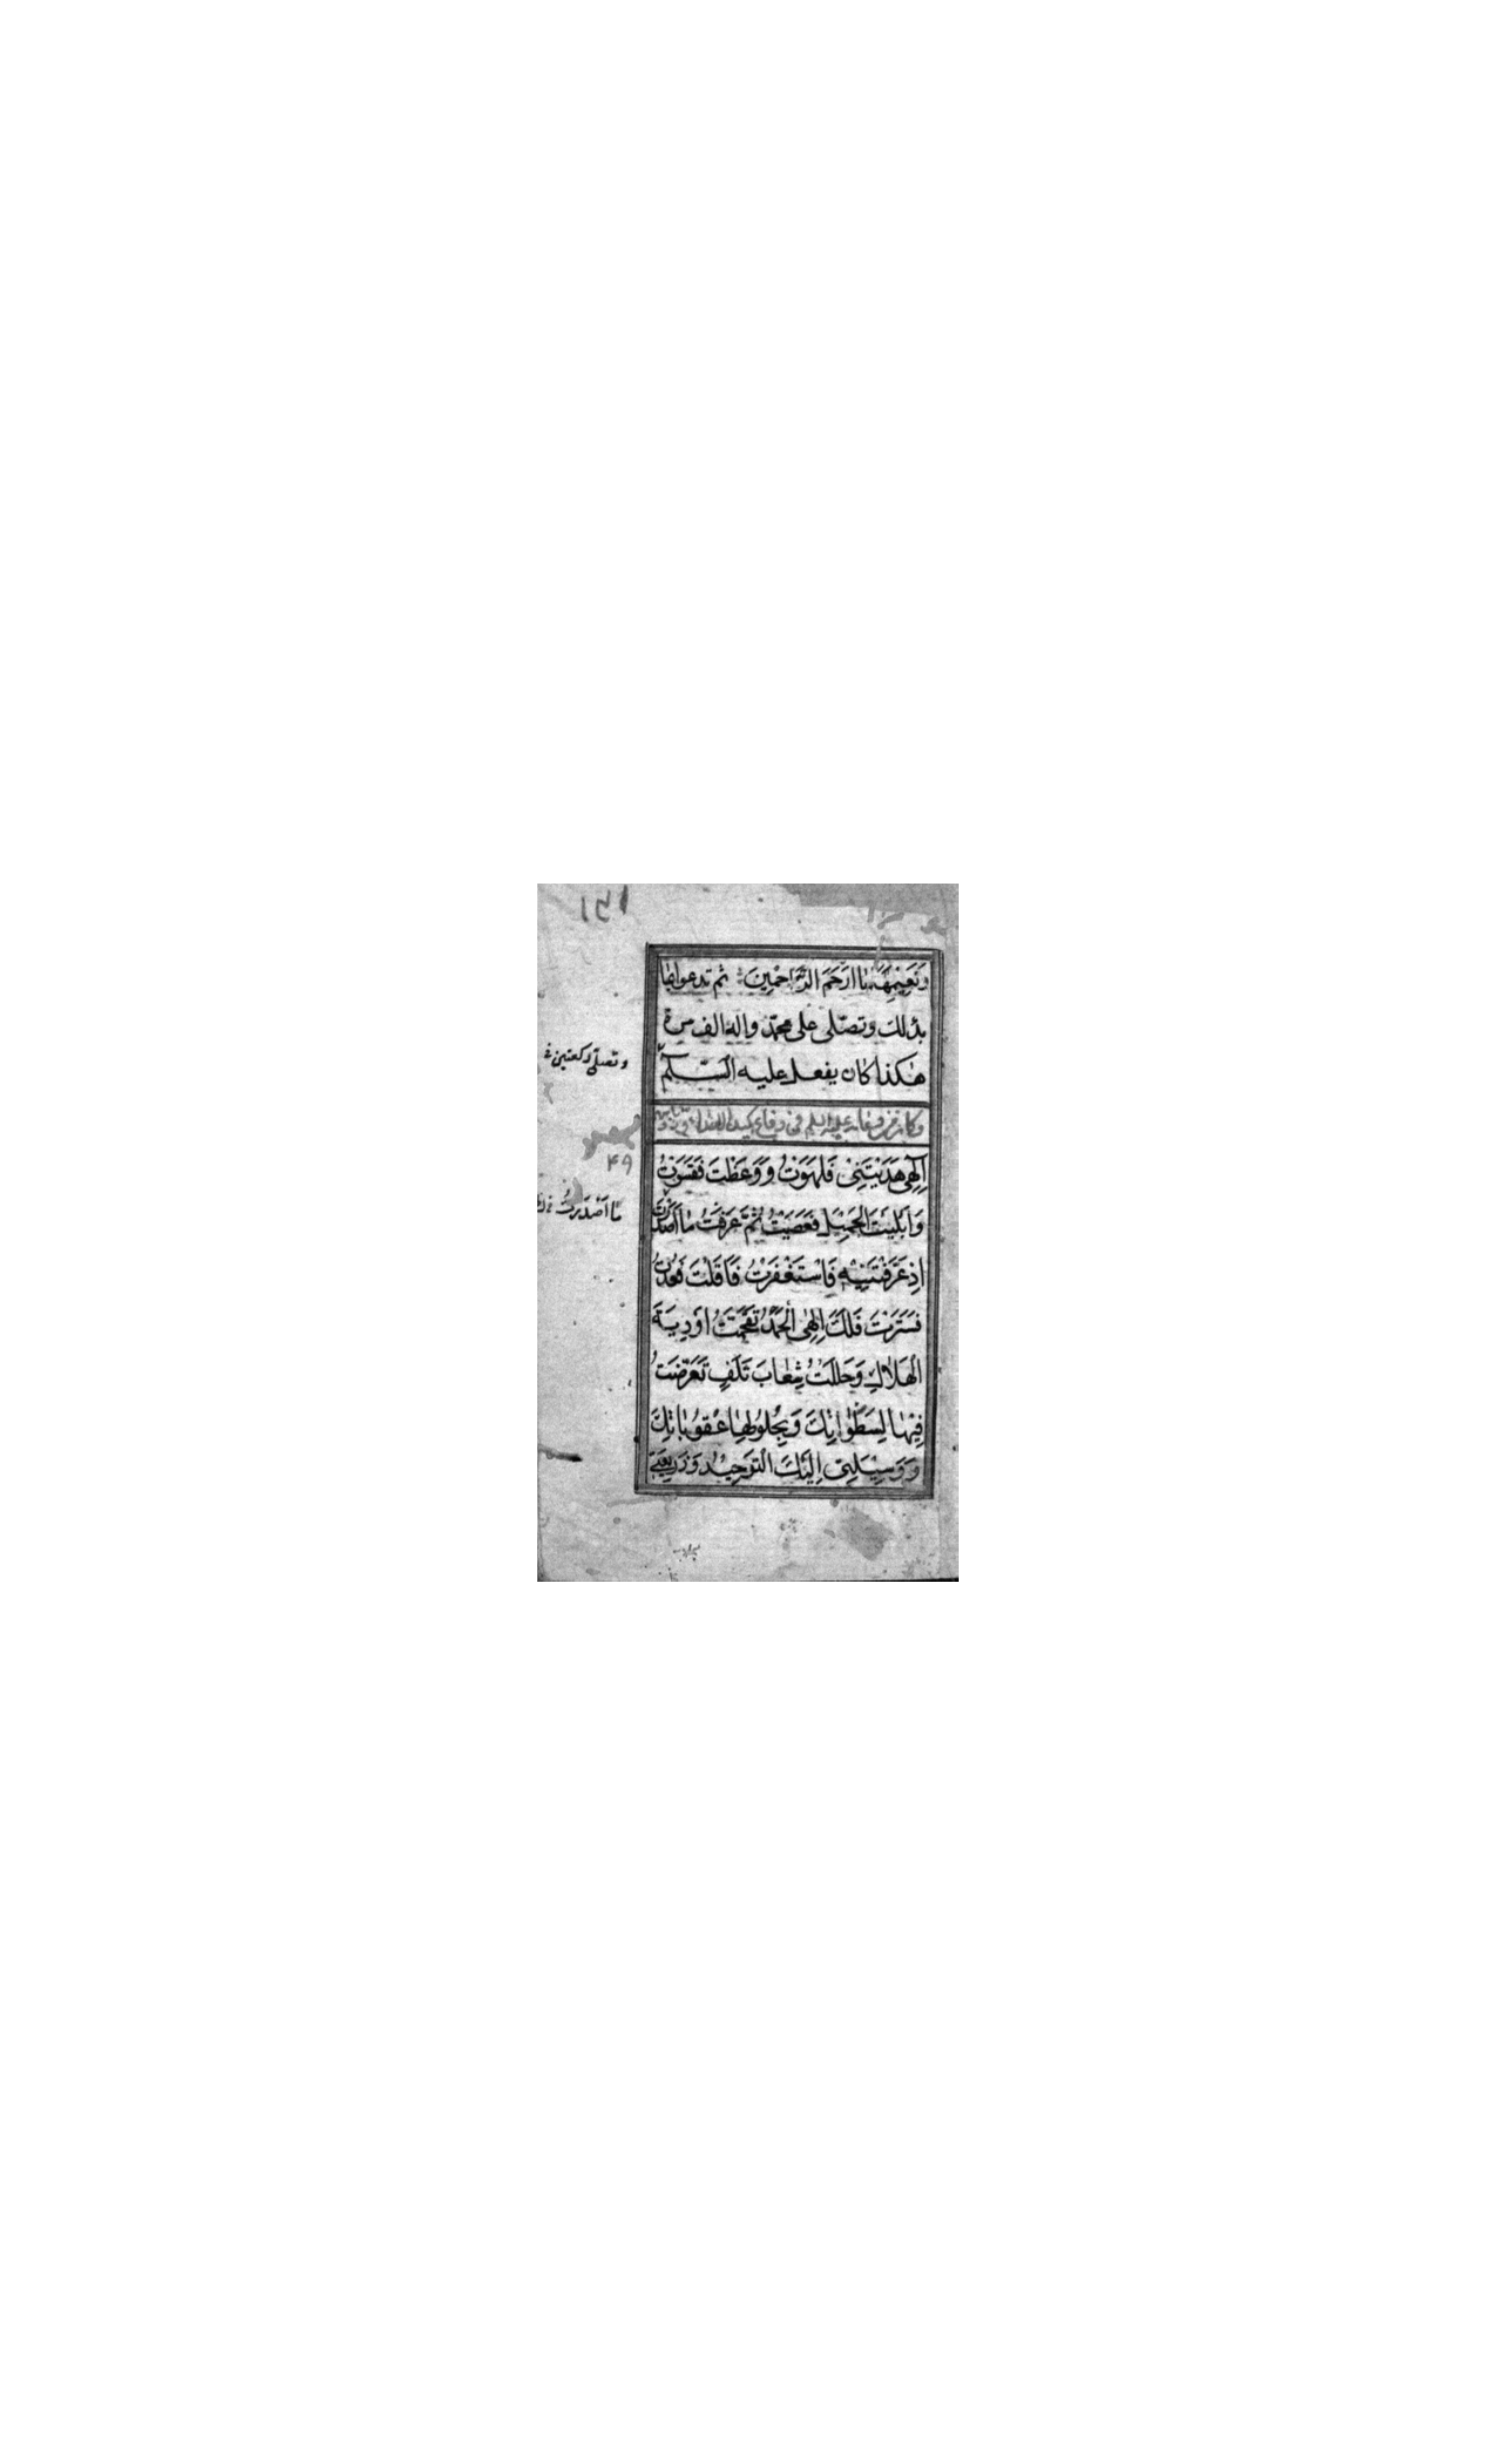 وَنَعِيْمِهَا يَا اَرْحَمَ الرَّاحِمِيْنَ ثم تدعو بما
بدا لك وتصلى على محمّد واله الف مرة
هٰكذا كان يفعل عليه السّلام
وكان من دعائه عليه السلم فى دفاع كيد الاعداء ورد باسهم
اِلٰهِى هَدَيْتَنِىْ فَلَهَوْتُ وَوَعَظْتَ فَقَسَوْتُ
وَاَبْلَيْتَ الْجَمِيْلَ فَعَصَيْتُ ثُمَّ عَرَفْتُ مٰا اَصْدَرْتَ
اِذْ عَرَّفْتَنِيْهِ فَاسْتَغْفَرْتُ فَاَقَلْتَ فَعُدْتُ
فَسَتَرْتَ فَلَكَ اِلٰهِى الْحَمْدُ تَقَحَّمْتُ اَوْدِيَةَ
الْهَلَاكِ وَحَلَلْتُ شِعَابَ تَلَفٍ تَعَرَّضْتُ
فِيْهَا لِسَطَوٰاتِكَ وَبِحُلُوْلِهٰا عُقُوْبٰاتِكَ
وَوَسِيْلَتِىْ اِلَيْكَ التَّوْحِيْدُ وَذَرِيْعَتِىْ
وتصلى ركعتين
۴۹
مٰا اَصْدَرْتُ